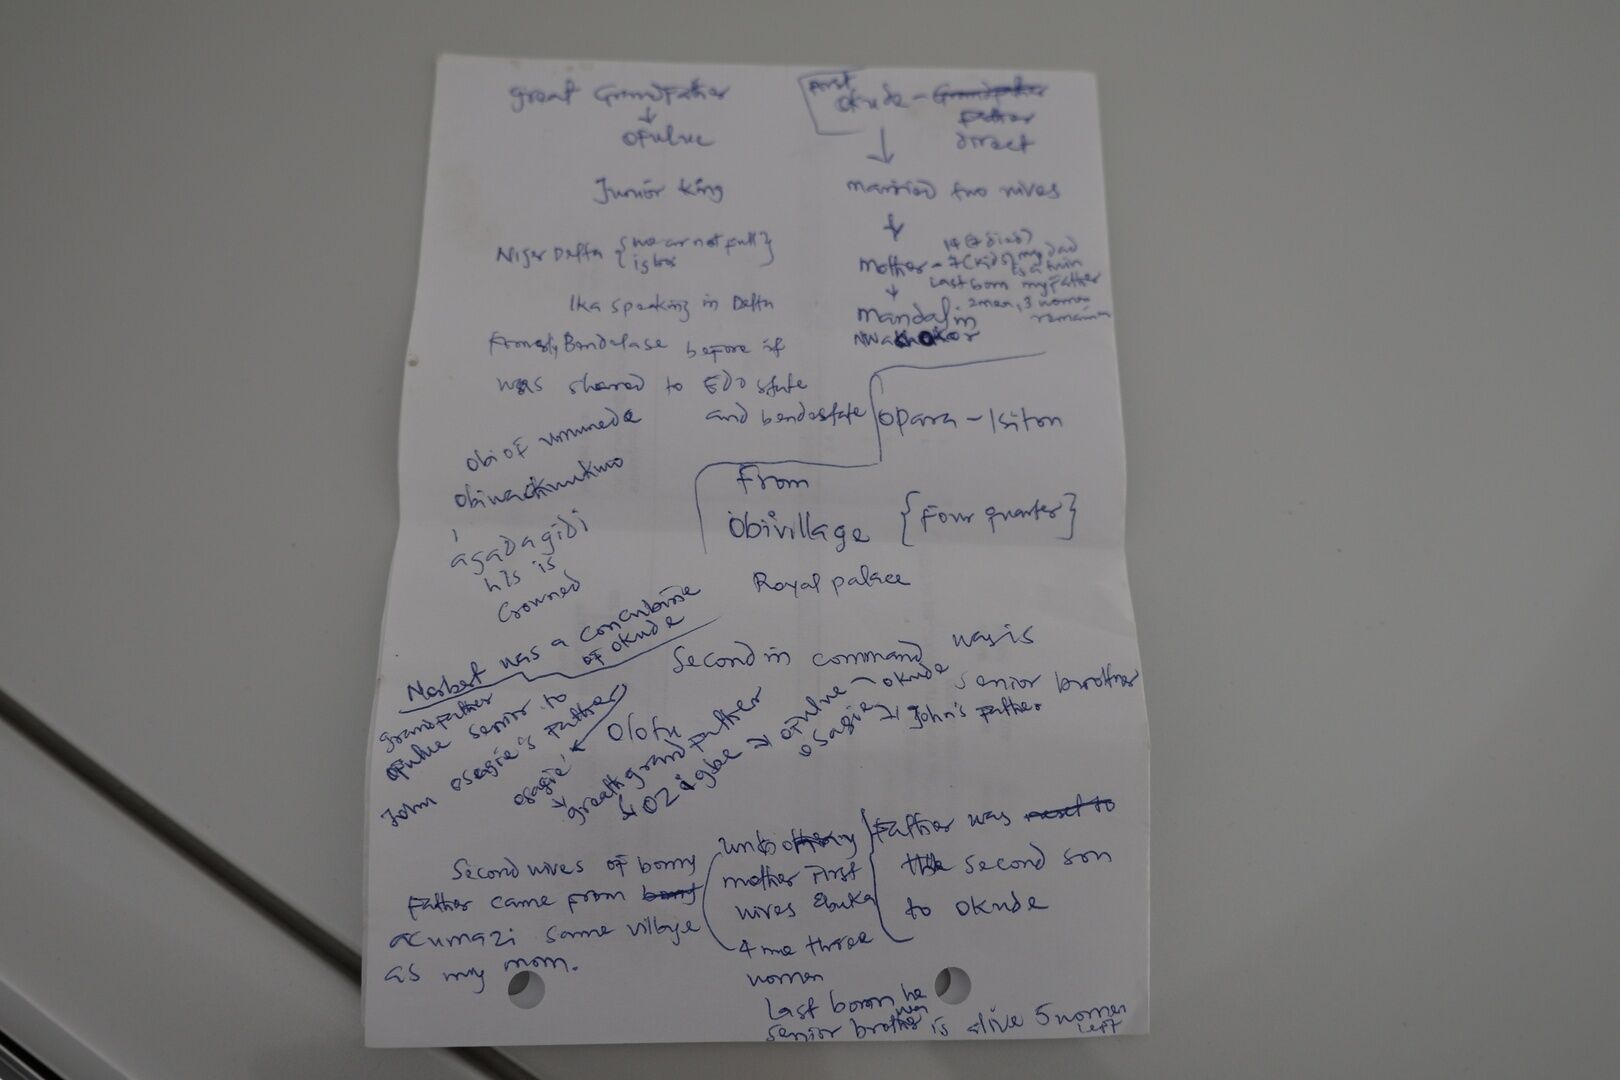 great Grandfather
↓
ofulue
Junior king
Niger Delta {we are not full}
igbo
Ika speaking in Delta
Bendelase before it
was shared to EDO state
and bendestate
obi of ummede
agadagidi
his is
crowned
First
okude - Grandfather
Father
direct
↓
married two wives
↓
14 (7 died)
mother = 7 (kids) my dad
is a twin
Last born my father
↓
2 men, 3 women
remain
mandalin
opara - Isiton
From
Obivillage {Four quarter}
Royal palace
Norbert was a concubine
of okude
Second in command was is
grandfather
ofulue senior to
John osagie's father
osagie
Olotu
great grand father
igbe → ofulue - okude senior brother
osagie → John's father
Second wives of bonny
Father came from bony
acumazi same village
as my mom.
mother First
wives Ebuka
4 me three
women
Last born he
was
senior brother is alive 5 women
left
Father was next to
the second son
to okude